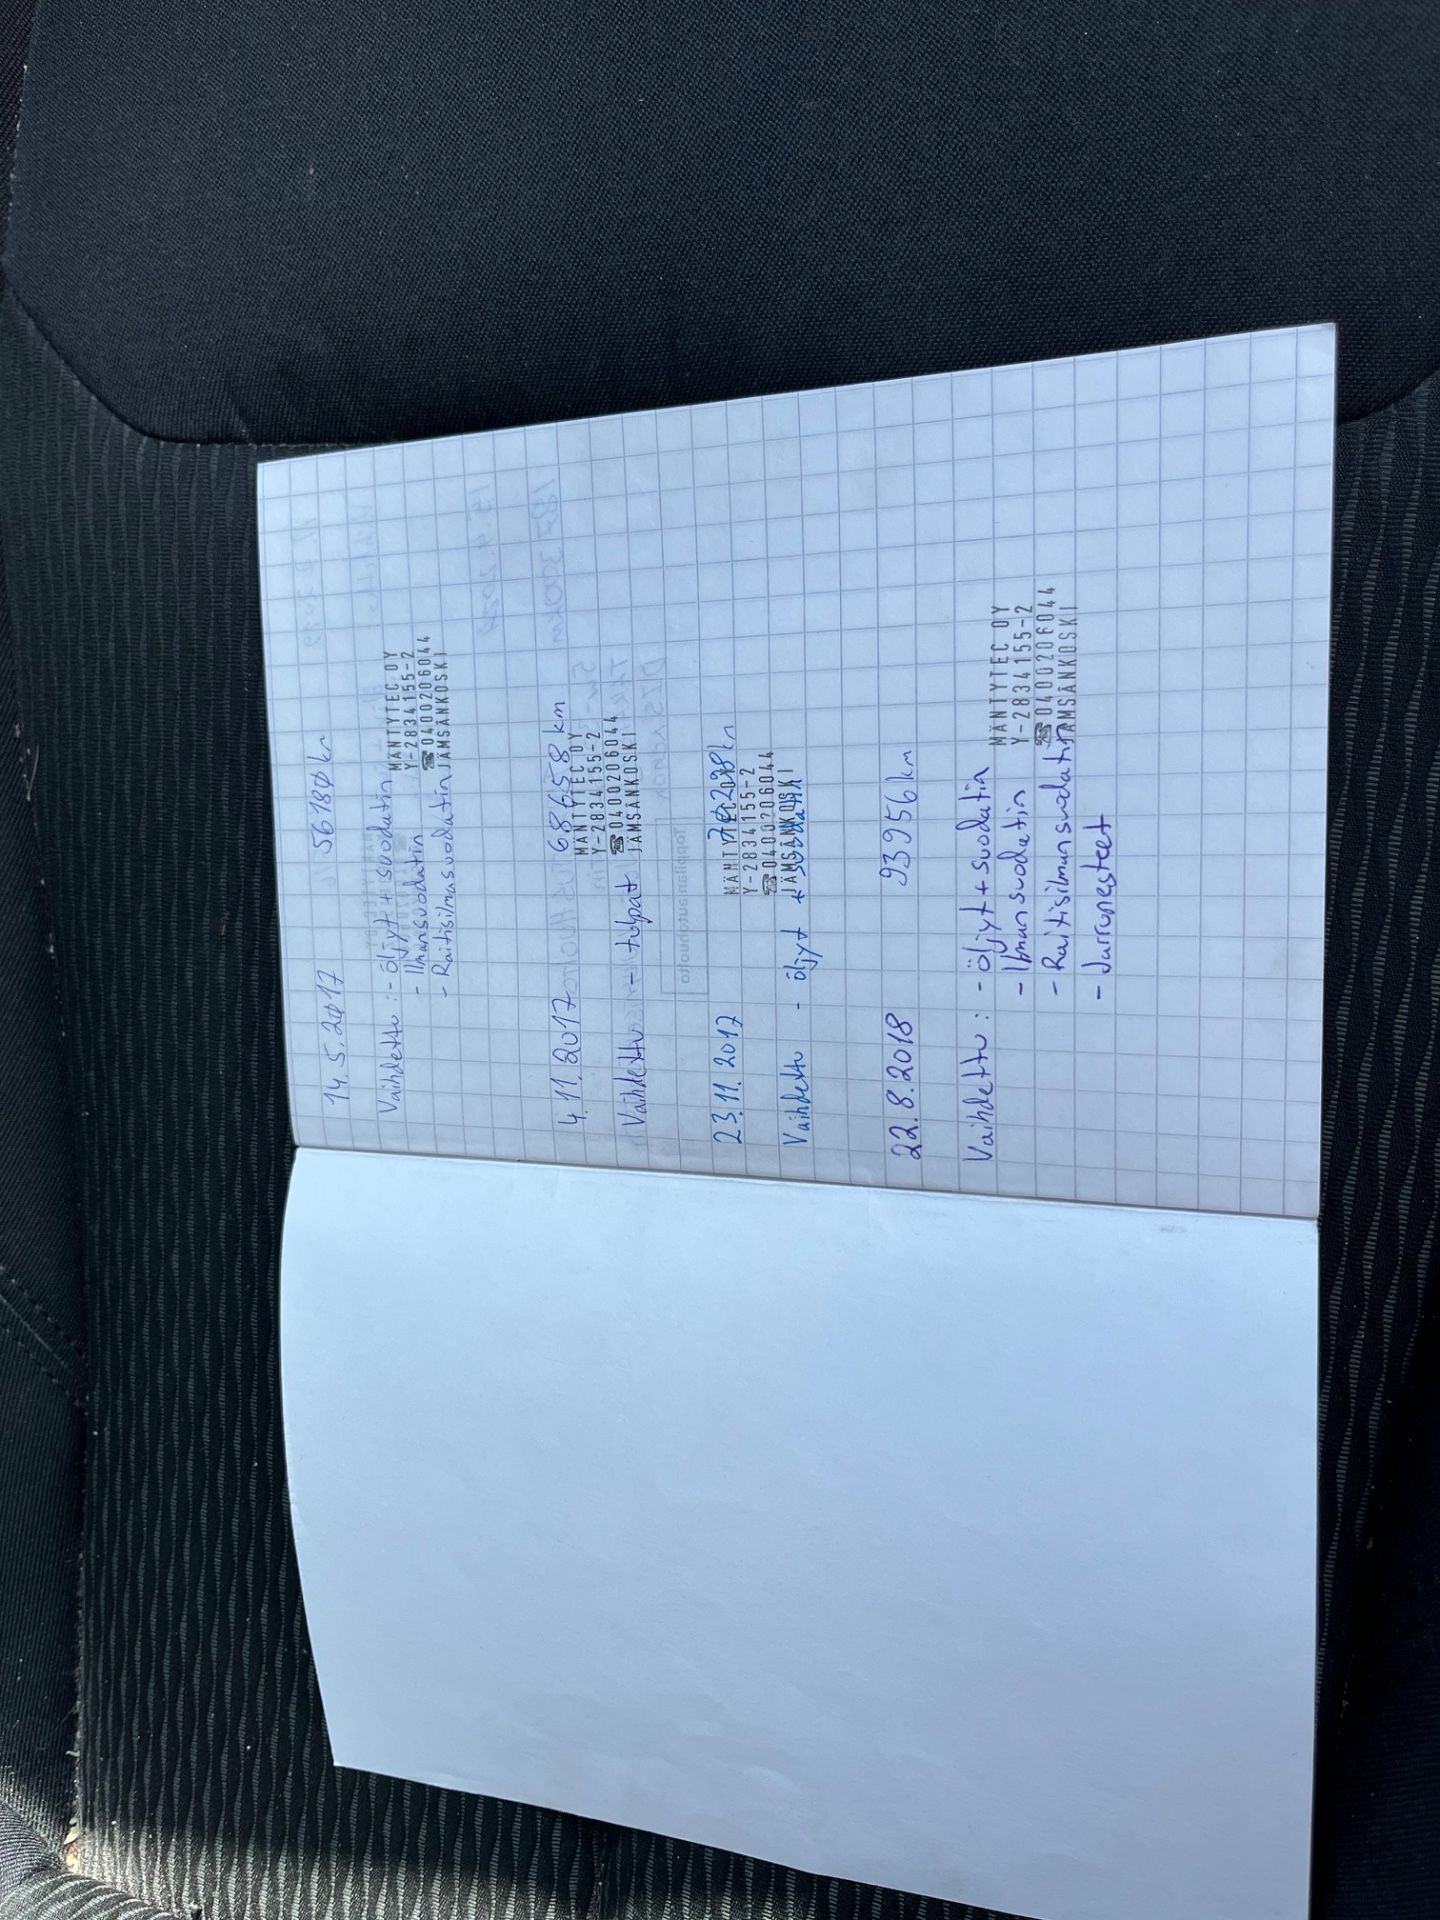 14.5.2017 56180 km
Vaihdettu: - öljyt + suodatin
- Ilmansuodatin
- Raitisilmasuodatin
MÄNTYTEC OY
Y-2834155-2
☎0400206044
JÄMSÄNKOSKI
4.11.2017 68658 km
Vaihdettu - tulpat
MÄNTYTEC OY
Y-2834155-2
☎0400206044
JÄMSÄNKOSKI
23.11.2017 70298 km
Vaihdettu - öljyt + suodatin
MÄNTYTEC OY
Y-2834155-2
☎0400206044
JÄMSÄNKOSKI
22.8.2018 93956 km
Vaihdettu: - öljyt + suodatin
- Ilmansuodatin
- Raitisilmansuodatin
- Jarrunesteet
MÄNTYTEC OY
Y-2834155-2
☎0400206044
JÄMSÄNKOSKI